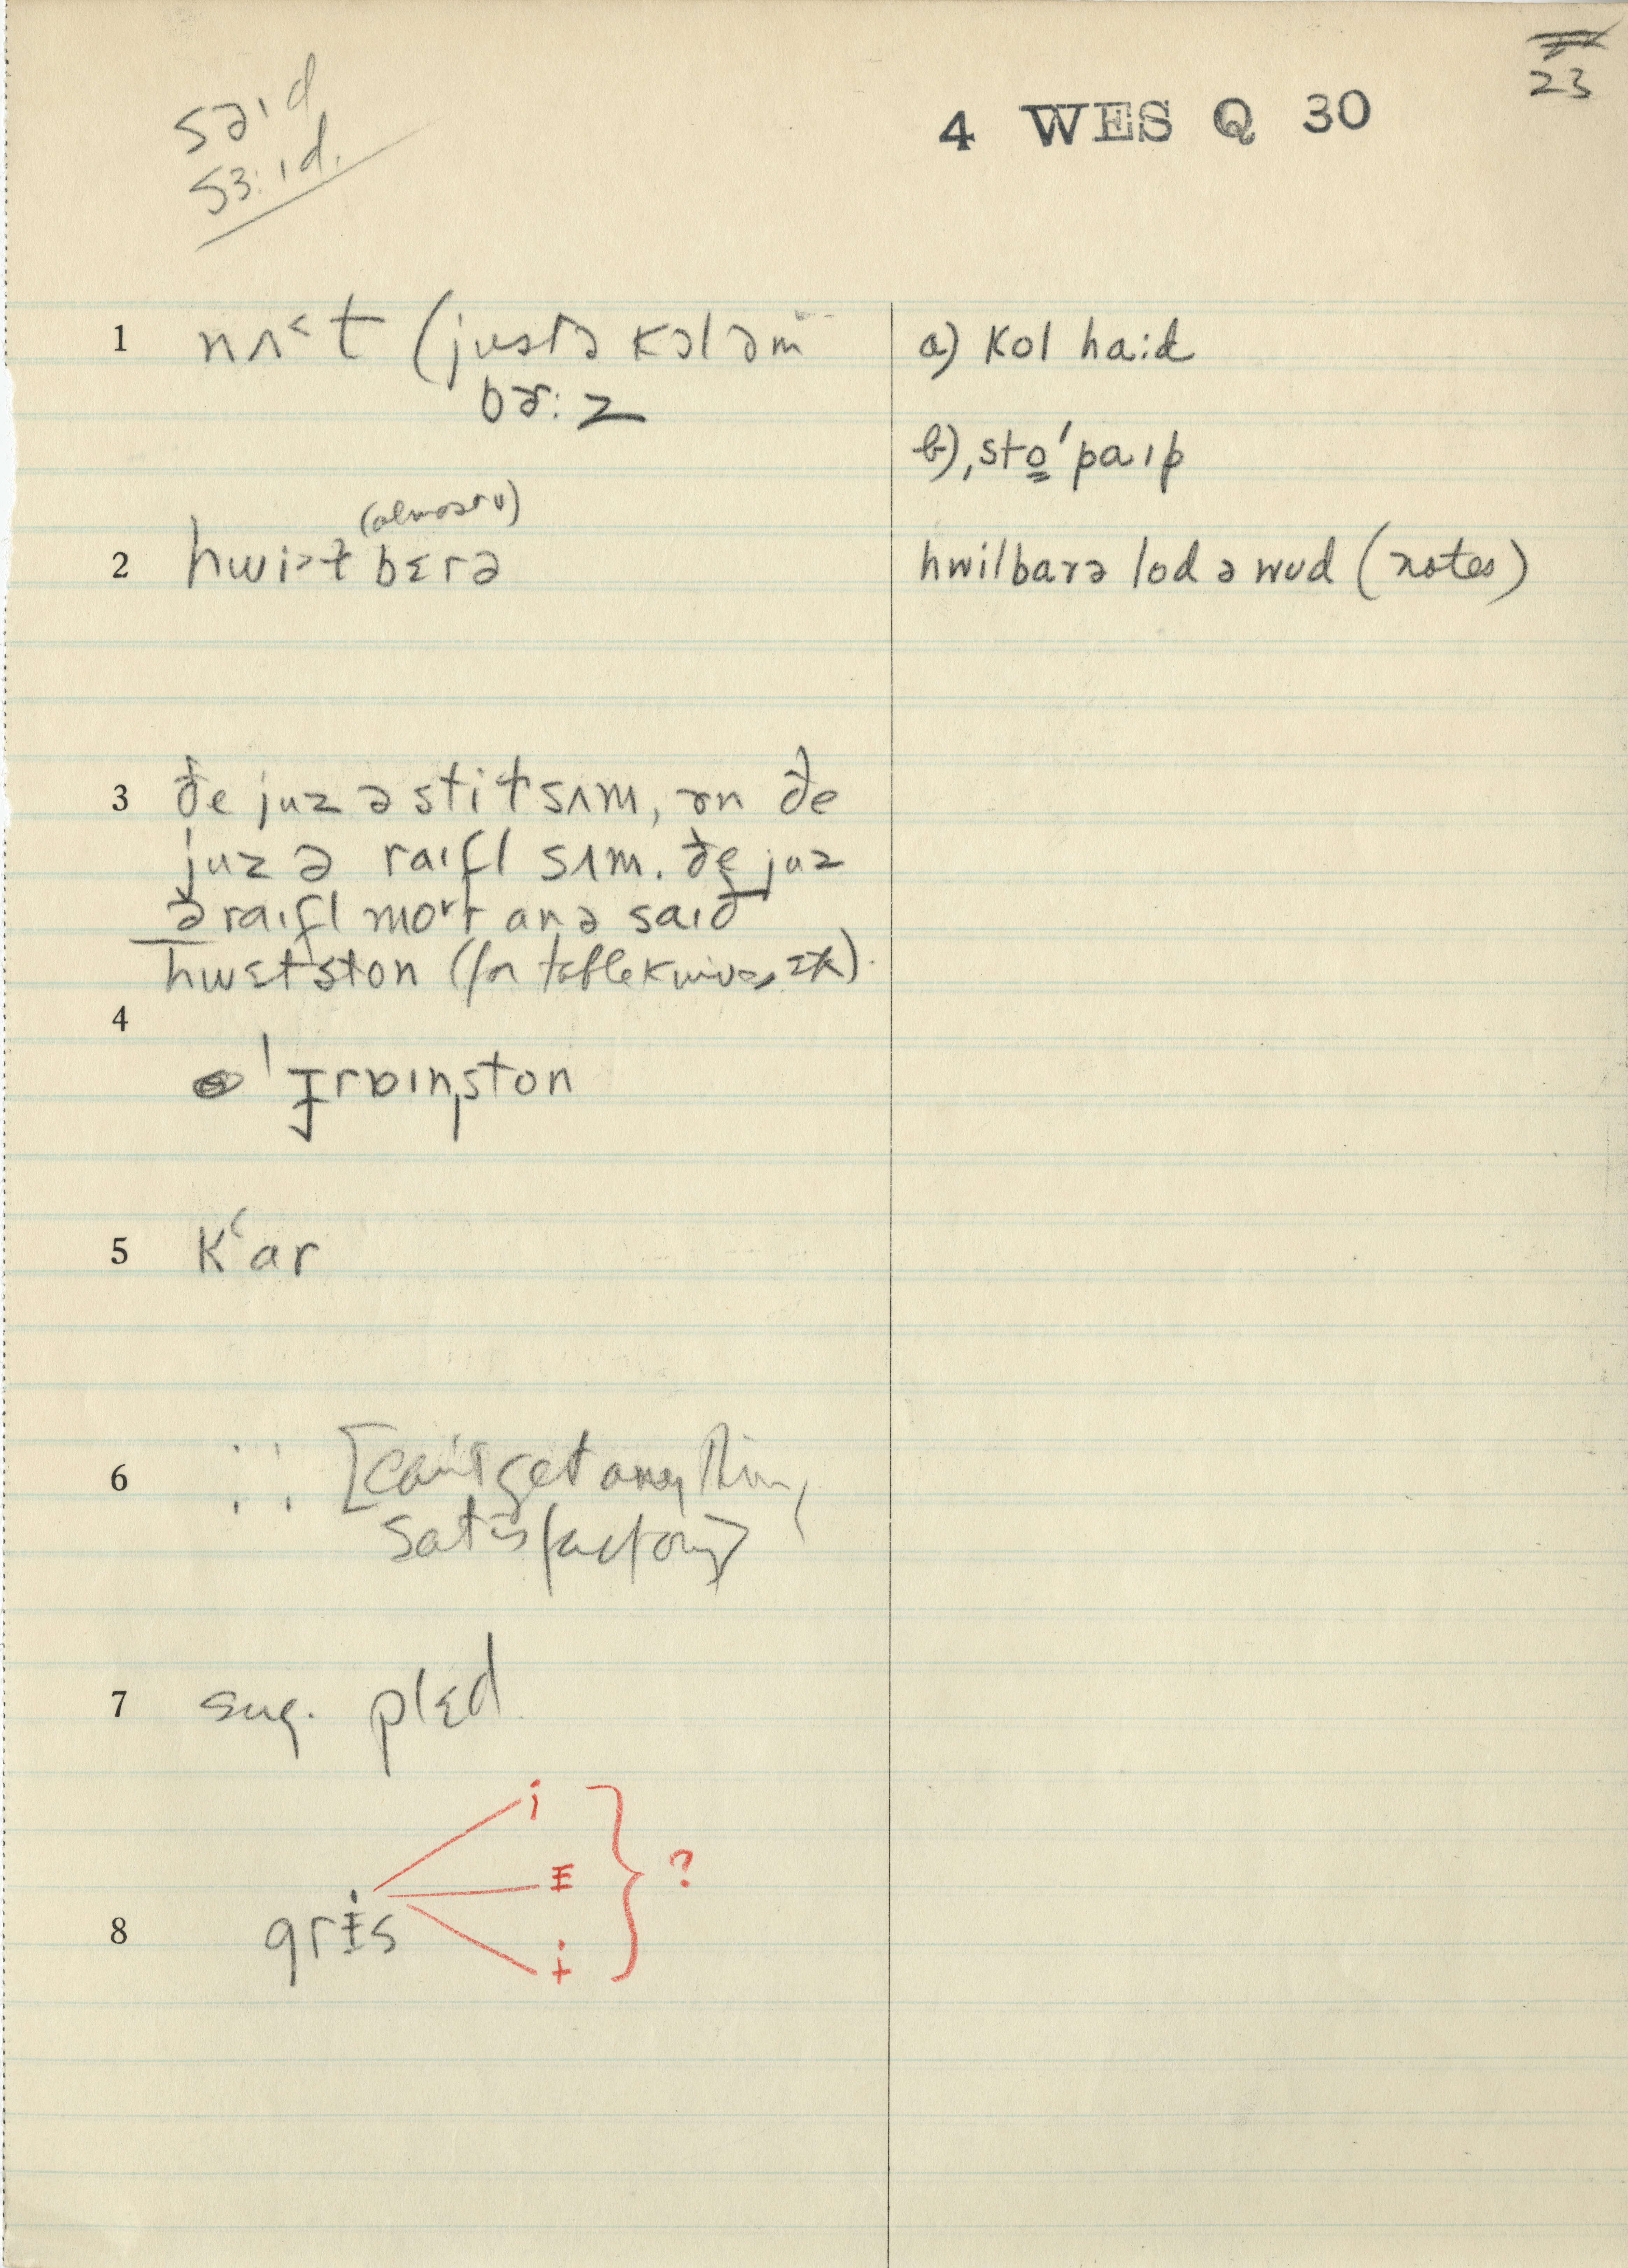 23
4 WES Q 30
səɪd
sɜ:ɪd.
1 nʌ˂t (justə kɔləm
bɚ:z
a) kol haid
b) ˌsto̳ˈpaɪp
2 hwiɫbɛrə
hwilbarə lod ə wud (notes)
3 ðe juz ə stiɫ sʌm, ən ðe
juz ə raɪfl sʌm. ðe juz
ə raɪfl moʳt anə saɪð
hwɛtston (for table knives etc).
4
ˈgraɪnˌston
5 kʻar
6 [can't get anything
satisfactory]
7 sug. plɛd
i
ɪ
8 gris
ɨ
?